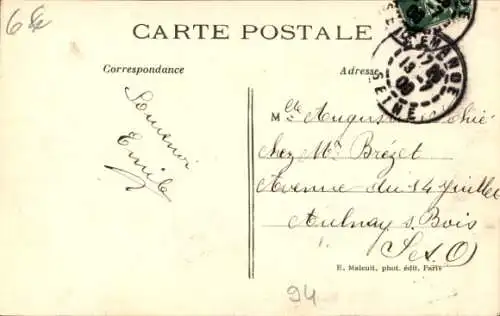 6 €
CARTE POSTALE
Correspondance
Adresse
SEINE
13-7
09
Souvenir
Emile
Mlle Augustine
chez Mr Brézet
Avenue du 14 Juillet
Aulnay s. Bois
S et O
E. Maleuit, phot. édit. Paris
94